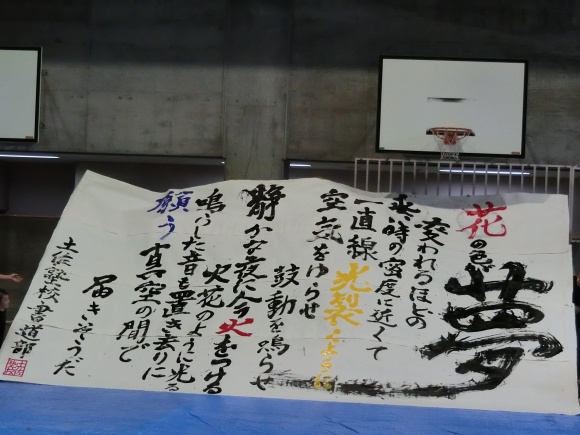 花の
夢
変われるほどの
一直線
空気をゆらせ
鼓動を鳴らせ
静かな夜に今火をつける
火花のように光る
鳴らした音も置き去りに
願う真空の間で
届きそうだ
土佐塾校書道部